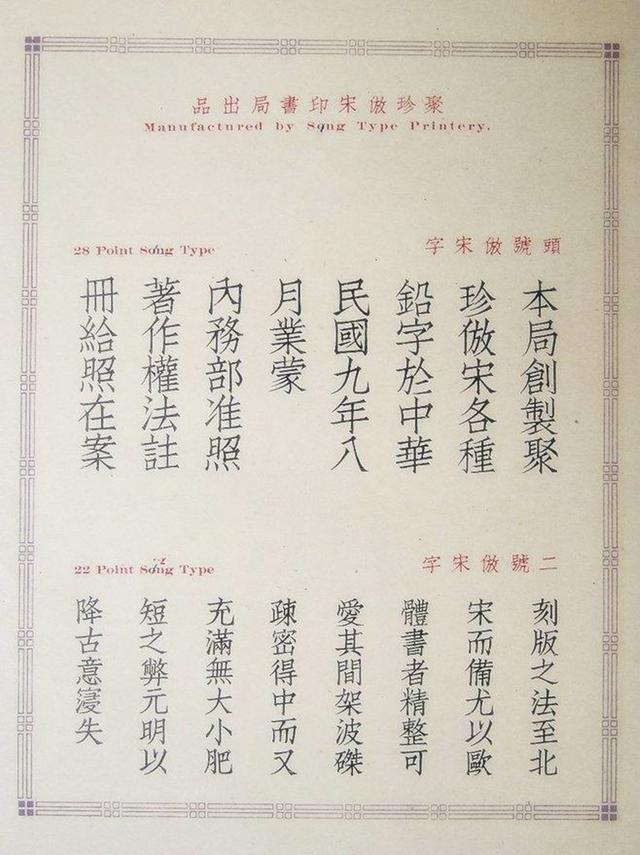 聚珍倣宋印書局出品
Manufactured by Song Type Printery.
頭號倣宋字
28 Point Song Type
本局創製聚
珍倣宋各種
鉛字於中華
民國九年八
月業蒙
內務部准照
著作權法註
冊給照在案
二號倣宋字
22 Point Song Type
刻版之法至北
宋而備尤以歐
體書者精整可
愛其間架波磔
疎密得中而又
充滿無大小肥
短之弊元明以
降古意寖失